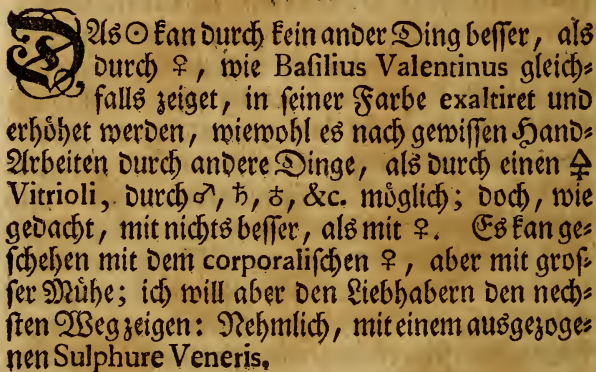 DAs ☉ kan durch kein ander Ding besser, als
durch ♀, wie Basilius Valentinus gleich⸗
falls zeiget, in seiner Farbe exaltiret und
erhöhet werden, wiewohl es nach gewissen Hand⸗
Arbeiten durch andere Dinge, als durch einen 🜍
Vitrioli, durch ♂, ♄, ♁, &c. möglich; doch, wie
gedacht, mit nichts besser, als mit ♀. Es kan ge⸗
schehen mit dem corporalischen ♀, aber mit gros⸗
ser Mühe; ich will aber den Liebhabern den nech⸗
sten Weg zeigen: Nehmlich, mit einem ausgezoge⸗
nen Sulphure Veneris.